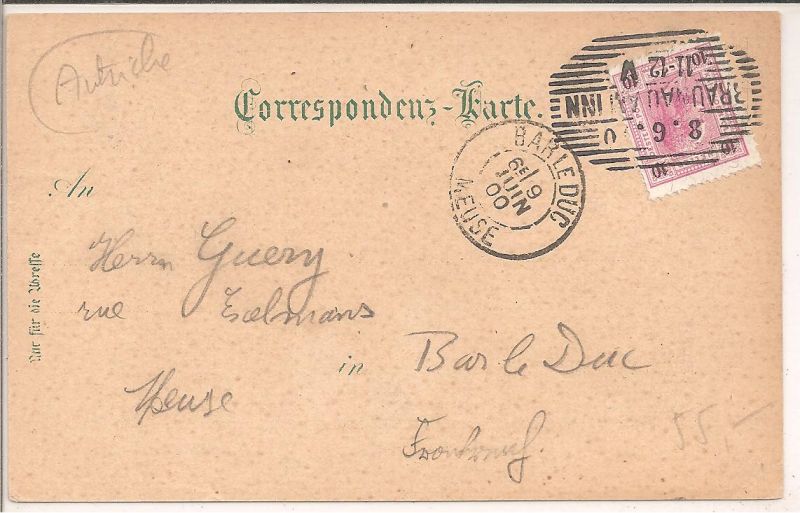 Autriche
Correspondenz-Karte.
BRAUNAU AM INN
8.6.
11-12
10 10
BAR LE DUC
6E
9
JUIN
00
MEUSE
An
Herrn Guery
rue Exelmans
in Bar le Duc
Meuse
Frankreich
55,-
Nur für die Adresse